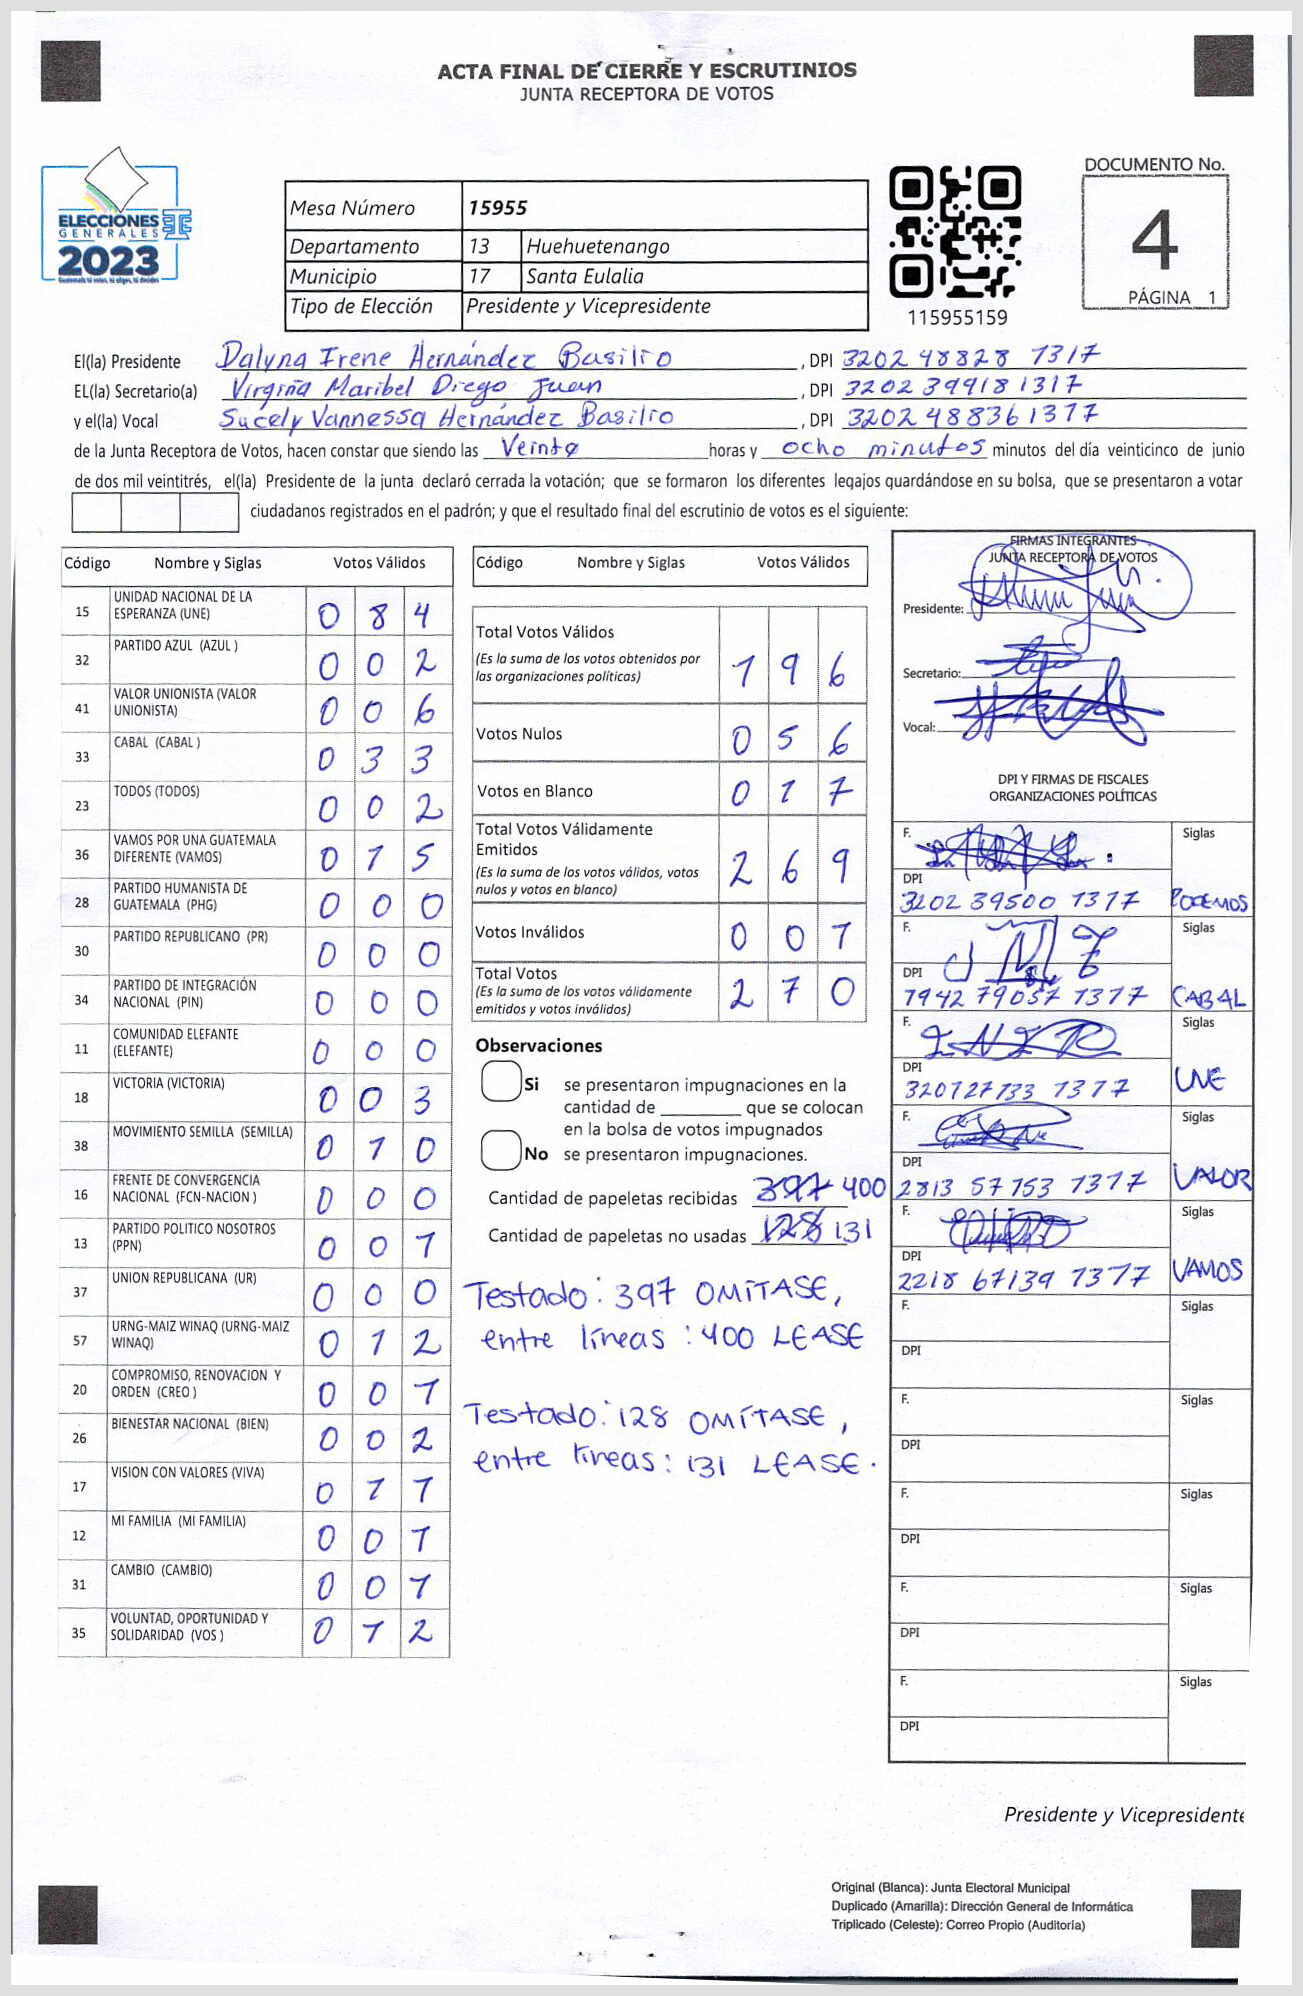 ACTA FINAL DE CIERRE Y ESCRUTINIOS
JUNTA RECEPTORA DE VOTOS
ELECCIONES
GENERALES
2023
Mesa Número 15955
Departamento 13 Huehuetenango
Municipio 17 Santa Eulalia
Tipo de Elección Presidente y Vicepresidente
115955159
DOCUMENTO No.
4
PÁGINA 1
El(la) Presidente Dalyna Irene Hernández Basilio, DPI 3202 48828 1317
EL(la) Secretario(a) Virginia Maribel Diego Juan, DPI 3202 39918 1317
y el(la) Vocal Sucely Vannessa Hernández Basilio, DPI 3202 48836 1317
de la Junta Receptora de Votos, hacen constar que siendo las Veinte horas y ocho minutos minutos del día veinticinco de junio
de dos mil veintitrés, el(la) Presidente de la junta declaró cerrada la votación; que se formaron los diferentes legajos guardándose en su bolsa, que se presentaron a votar
ciudadanos registrados en el padrón; y que el resultado final del escrutinio de votos es el siguiente:
Código Nombre y Siglas Votos Válidos
15 UNIDAD NACIONAL DE LA ESPERANZA (UNE) 0 8 4
32 PARTIDO AZUL (AZUL ) 0 0 2
41 VALOR UNIONISTA (VALOR UNIONISTA) 0 0 6
33 CABAL (CABAL ) 0 3 3
23 TODOS (TODOS) 0 0 2
36 VAMOS POR UNA GUATEMALA DIFERENTE (VAMOS) 0 1 5
28 PARTIDO HUMANISTA DE GUATEMALA (PHG) 0 0 0
30 PARTIDO REPUBLICANO (PR) 0 0 0
34 PARTIDO DE INTEGRACIÓN NACIONAL (PIN) 0 0 0
11 COMUNIDAD ELEFANTE (ELEFANTE) 0 0 0
18 VICTORIA (VICTORIA) 0 0 3
38 MOVIMIENTO SEMILLA (SEMILLA) 0 1 0
16 FRENTE DE CONVERGENCIA NACIONAL (FCN-NACION ) 0 0 0
13 PARTIDO POLITICO NOSOTROS (PPN) 0 0 1
37 UNION REPUBLICANA (UR) 0 0 0
57 URNG-MAIZ WINAQ (URNG-MAIZ WINAQ) 0 1 2
20 COMPROMISO, RENOVACION Y ORDEN (CREO ) 0 0 1
26 BIENESTAR NACIONAL (BIEN) 0 0 2
17 VISION CON VALORES (VIVA) 0 1 1
12 MI FAMILIA (MI FAMILIA) 0 0 1
31 CAMBIO (CAMBIO) 0 0 1
35 VOLUNTAD, OPORTUNIDAD Y SOLIDARIDAD (VOS ) 0 1 2
Código Nombre y Siglas Votos Válidos
Total Votos Válidos 1 9 6
(Es la suma de los votos obtenidos por
las organizaciones políticas)
Votos Nulos 0 5 6
Votos en Blanco 0 1 7
Total Votos Válidamente
Emitidos 2 6 9
(Es la suma de los votos válidos, votos
nulos y votos en blanco)
Votos Inválidos 0 0 1
Total Votos 2 7 0
(Es la suma de los votos válidamente
emitidos y votos inválidos)
Observaciones
Si se presentaron impugnaciones en la
cantidad de ________ que se colocan
en la bolsa de votos impugnados
No se presentaron impugnaciones.
Cantidad de papeletas recibidas 397 400
Cantidad de papeletas no usadas 128 131
Testado: 397 OMÍTASE,
entre líneas: 400 LEASE
Testado: 128 OMÍTASE,
entre líneas: 131 LEASE.
FIRMAS INTEGRANTES
JUNTA RECEPTORA DE VOTOS
Presidente:
Secretario:
Vocal:
DPI Y FIRMAS DE FISCALES
ORGANIZACIONES POLÍTICAS
F. Siglas
DPI
3202 39500 1317 PODEMOS
F. Siglas
DPI
1942 79057 1317 CABAL
F. Siglas
DPI
320127133 1317 UNE
F. Siglas
DPI
2813 57153 1317 VALOR
F. Siglas
DPI
2218 67139 1317 VAMOS
F. Siglas
DPI
F. Siglas
DPI
F. Siglas
DPI
F. Siglas
DPI
F. Siglas
DPI
Presidente y Vicepresidente
Original (Blanca): Junta Electoral Municipal
Duplicado (Amarilla): Dirección General de Informática
Triplicado (Celeste): Correo Propio (Auditoria)